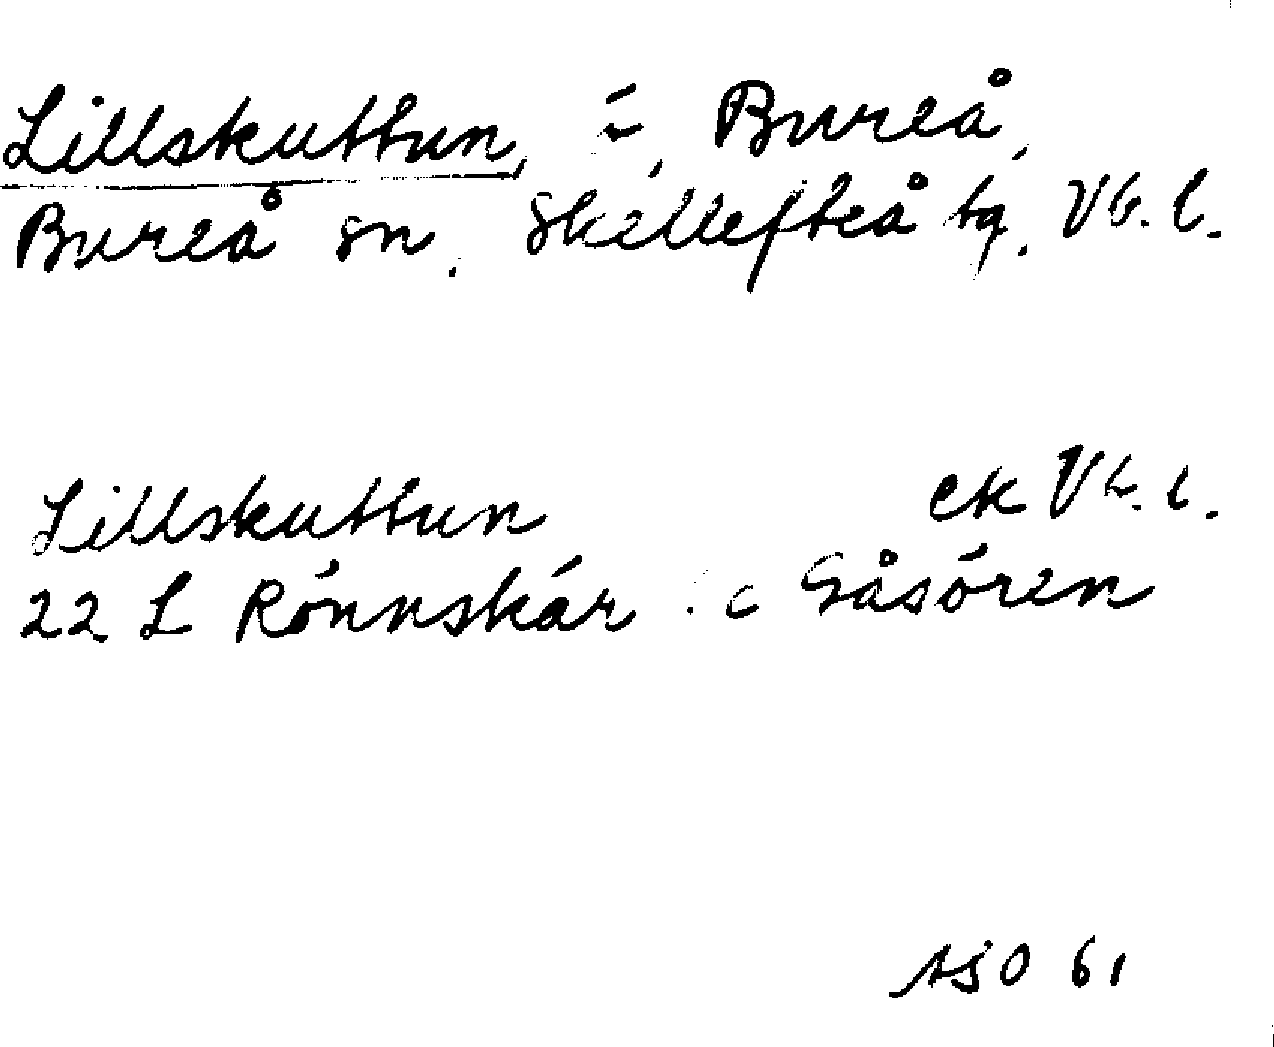 Lillskuttun, ö, Bureå,
Bureå sn. Skellefteå tg. Vb. l.
Lillskuttun ek Vb. l.
22 L Rönnskär Gåsören
ASO 61